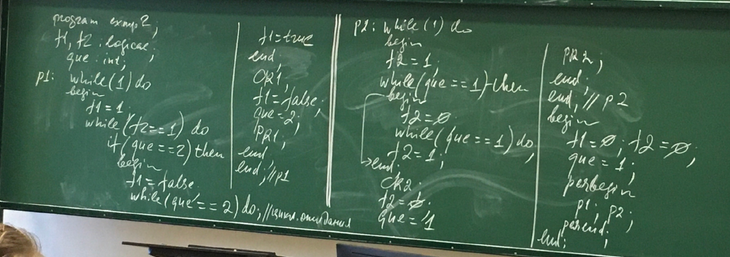 program exmp2;
f1, f2 : logical;
que : int;
p1: while(1) do
begin
f1=1
while(f2==1) do
if(que==2) then
begin
f1=false
while(que==2) do; //цикл. ожидания
f1=true
end;
CR1;
f1=false;
que=2;
PR1;
end
end; //p1
p2: while(1) do
begin
f2=1;
while(que==1) then
begin
f2=0
while(que==1) do;
f2=1;
end;
CR2;
f2=0;
que=1
PR2;
end;
end; //p2
begin
f1=0; f2=0;
que=1;
parbegin
p1; p2;
parend;
end;